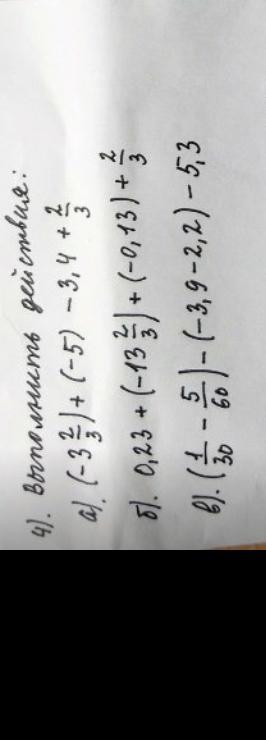 4). Выполнить действия:
а). (-3 2/3) + (-5) - 3,4 + 2/3
б). 0,23 + (-13 2/3) + (-0,13) + 2/3
в). (1/30 - 5/60) - (-3,9 - 2,2) - 5,3